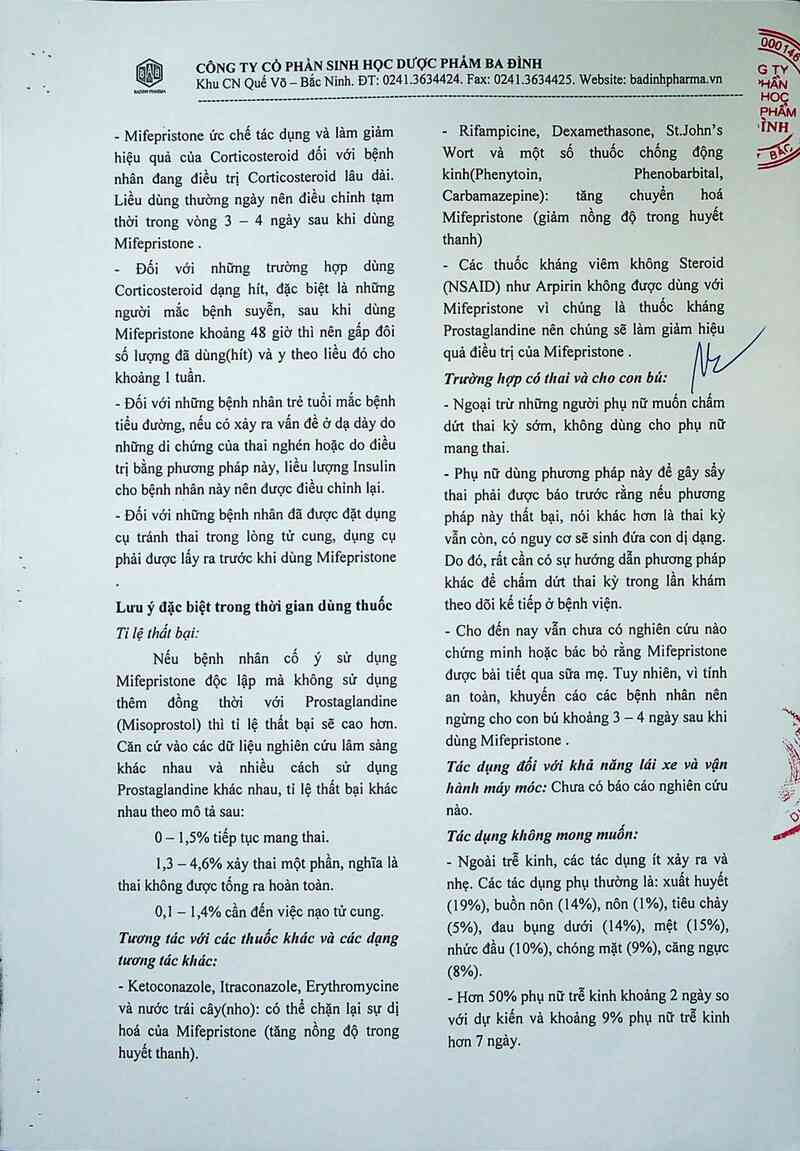 CÔNG TY CỔ PHẦN SINH HỌC DƯỢC PHẨM BA ĐÌNH
Khu CN Quế Võ – Bắc Ninh. ĐT: 0241.3634424. Fax: 0241.3634425. Website: badinhpharma.vn
BADINH PHARMA
- Mifepristone ức chế tác dụng và làm giảm
hiệu quả của Corticosteroid đối với bệnh
nhân đang điều trị Corticosteroid lâu dài.
Liều dùng thường ngày nên điều chỉnh tạm
thời trong vòng 3 – 4 ngày sau khi dùng
Mifepristone .
- Đối với những trường hợp dùng
Corticosteroid dạng hít, đặc biệt là những
người mắc bệnh suyễn, sau khi dùng
Mifepristone khoảng 48 giờ thì nên gấp đôi
số lượng đã dùng(hít) và y theo liều đó cho
khoảng 1 tuần.
- Đối với những bệnh nhân trẻ tuổi mắc bệnh
tiểu đường, nếu có xảy ra vấn đề ở dạ dày do
những di chứng của thai nghén hoặc do điều
trị bằng phương pháp này, liều lượng Insulin
cho bệnh nhân này nên được điều chỉnh lại.
- Đối với những bệnh nhân đã được đặt dụng
cụ tránh thai trong lòng tử cung, dụng cụ
phải được lấy ra trước khi dùng Mifepristone
.
Lưu ý đặc biệt trong thời gian dùng thuốc
Tỉ lệ thất bại:
Nếu bệnh nhân cố ý sử dụng
Mifepristone độc lập mà không sử dụng
thêm đồng thời với Prostaglandine
(Misoprostol) thì tỉ lệ thất bại sẽ cao hơn.
Căn cứ vào các dữ liệu nghiên cứu lâm sàng
khác nhau và nhiều cách sử dụng
Prostaglandine khác nhau, tỉ lệ thất bại khác
nhau theo mô tả sau:
0 – 1,5% tiếp tục mang thai.
1,3 – 4,6% xảy thai một phần, nghĩa là
thai không được tống ra hoàn toàn.
0,1 – 1,4% cần đến việc nạo tử cung.
Tương tác với các thuốc khác và các dạng
tương tác khác:
- Ketoconazole, Itraconazole, Erythromycine
và nước trái cây(nho): có thể chặn lại sự dị
hoá của Mifepristone (tăng nồng độ trong
huyết thanh).
- Rifampicine, Dexamethasone, St.John’s
Wort và một số thuốc chống động
kinh(Phenytoin, Phenobarbital,
Carbamazepine): tăng chuyển hoá
Mifepristone (giảm nồng độ trong huyết
thanh)
- Các thuốc kháng viêm không Steroid
(NSAID) như Arpirin không được dùng với
Mifepristone vì chúng là thuốc kháng
Prostaglandine nên chúng sẽ làm giảm hiệu
quả điều trị của Mifepristone .
Trường hợp có thai và cho con bú:
- Ngoại trừ những người phụ nữ muốn chấm
dứt thai kỳ sớm, không dùng cho phụ nữ
mang thai.
- Phụ nữ dùng phương pháp này để gây sẩy
thai phải được báo trước rằng nếu phương
pháp này thất bại, nói khác hơn là thai kỳ
vẫn còn, có nguy cơ sẽ sinh đứa con dị dạng.
Do đó, rất cần có sự hướng dẫn phương pháp
khác để chấm dứt thai kỳ trong lần khám
theo dõi kế tiếp ở bệnh viện.
- Cho đến nay vẫn chưa có nghiên cứu nào
chứng minh hoặc bác bỏ rằng Mifepristone
được bài tiết qua sữa mẹ. Tuy nhiên, vì tính
an toàn, khuyến cáo các bệnh nhân nên
ngừng cho con bú khoảng 3 – 4 ngày sau khi
dùng Mifepristone .
Tác dụng đối với khả năng lái xe và vận
hành máy móc: Chưa có báo cáo nghiên cứu
nào.
Tác dụng không mong muốn:
- Ngoài trễ kinh, các tác dụng ít xảy ra và
nhẹ. Các tác dụng phụ thường là: xuất huyết
(19%), buồn nôn (14%), nôn (1%), tiêu chảy
(5%), đau bụng dưới (14%), mệt (15%),
nhức đầu (10%), chóng mặt (9%), căng ngực
(8%).
- Hơn 50% phụ nữ trễ kinh khoảng 2 ngày so
với dự kiến và khoảng 9% phụ nữ trễ kinh
hơn 7 ngày.
000146
G TY
PHẦN
HỌC
PHẨM
ĐÌNH
BẮC